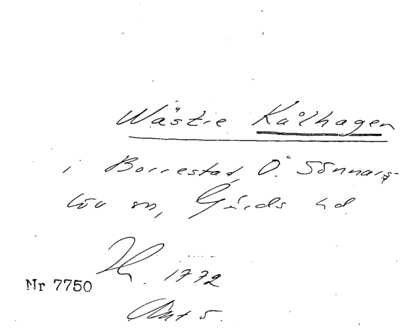 Wästre Kålhagen
i Borrestad, Ö. Sönnars-
löv sn, Gärds hd
Hh. 1772
Nr 7750
Akt 5